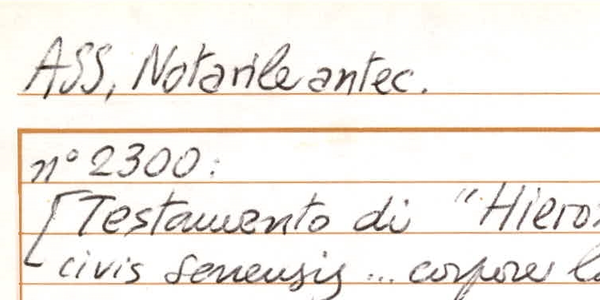 ASS, Notarile antec.
n° 2300:
[Testamento di "Hiero
civis senensis ... corpore